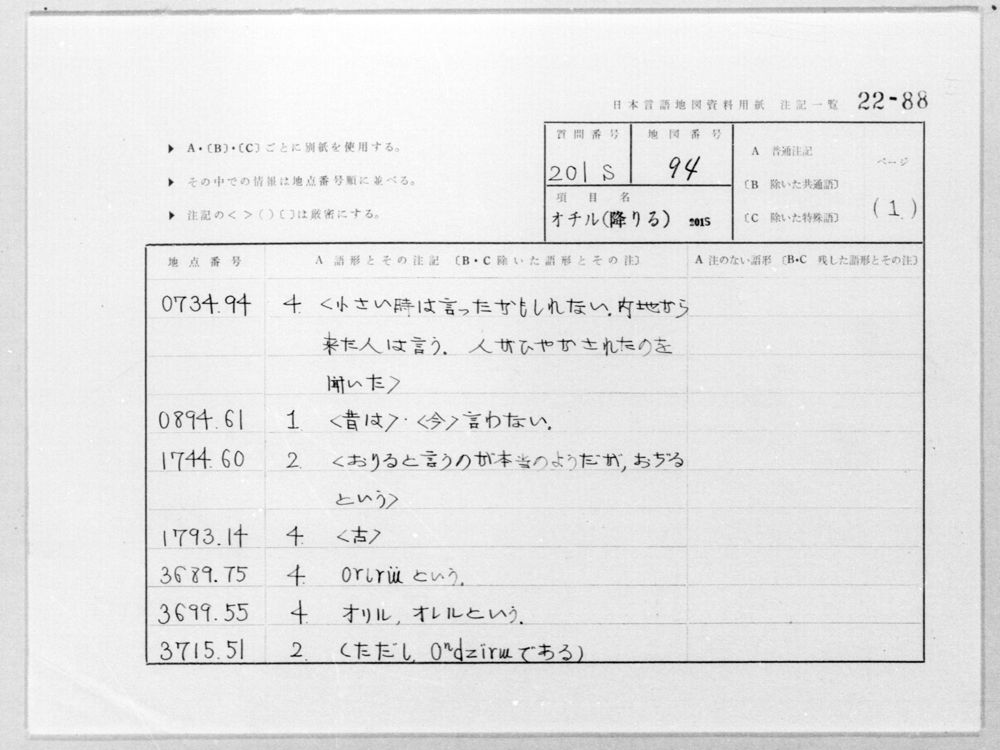 日本言語地図資料用紙 注記一覧 22-88
▶ A・〔B〕・〔C〕ごとに別紙を使用する。
▶ その中での情報は地点番号順に並べる。
▶ 注記の< >( )〔 〕は厳密にする。
質問番号 地図番号
201 S 94
項目名
オチル(降りる) 201S
A 普通注記
〔B 除いた共通語〕
〔C 除いた特殊語〕
ページ
(1)
地点番号 A 語形とその注記 〔B・C除いた語形とその注〕 A 注のない語形 〔B・C 残した語形とその注〕
0734.94 4. <小さい時は言ったかもしれない。内地から
来た人は言う. 人がひやかされたのを
聞いた>
0894.61 1. <昔は>・<今>言わない.
1744.60 2. <おりると言うのが本当のようだが,おぢる
という>
1793.14 4. <古>
3689.75 4. orɩrɯ̈ という.
3699.55 4. オリル, オレルという.
3715.51 2. (ただし, oⁿdzïrɯである)